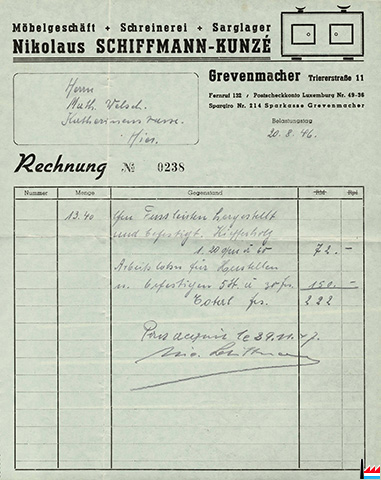 Möbelgeschäft + Schreinerei + Sarglager
Nikolaus SCHIFFMANN-KUNZÉ
Grevenmacher Triererstraße 11
Fernruf 132 / Postscheckkonto Luxemburg Nr. 49-36
Spargiro Nr. 214 Sparkasse Grevenmacher
Belastungstag
20.8.46.
Herrn
Math. Welsch.
Hier.
Rechnung № 0238
Nummer Menge Gegenstand RM Rpf
13.40 Fussleisten hergestellt
und befestigt. Kiefernholz
1.20 qm à 60 72.-
Arbeitslohn für Herstellen
u. befestigen 5 St. à 30 frs. 150.-
Total frs. 222
Pour acquit le 29.11.47.
Nic. Schiffmann